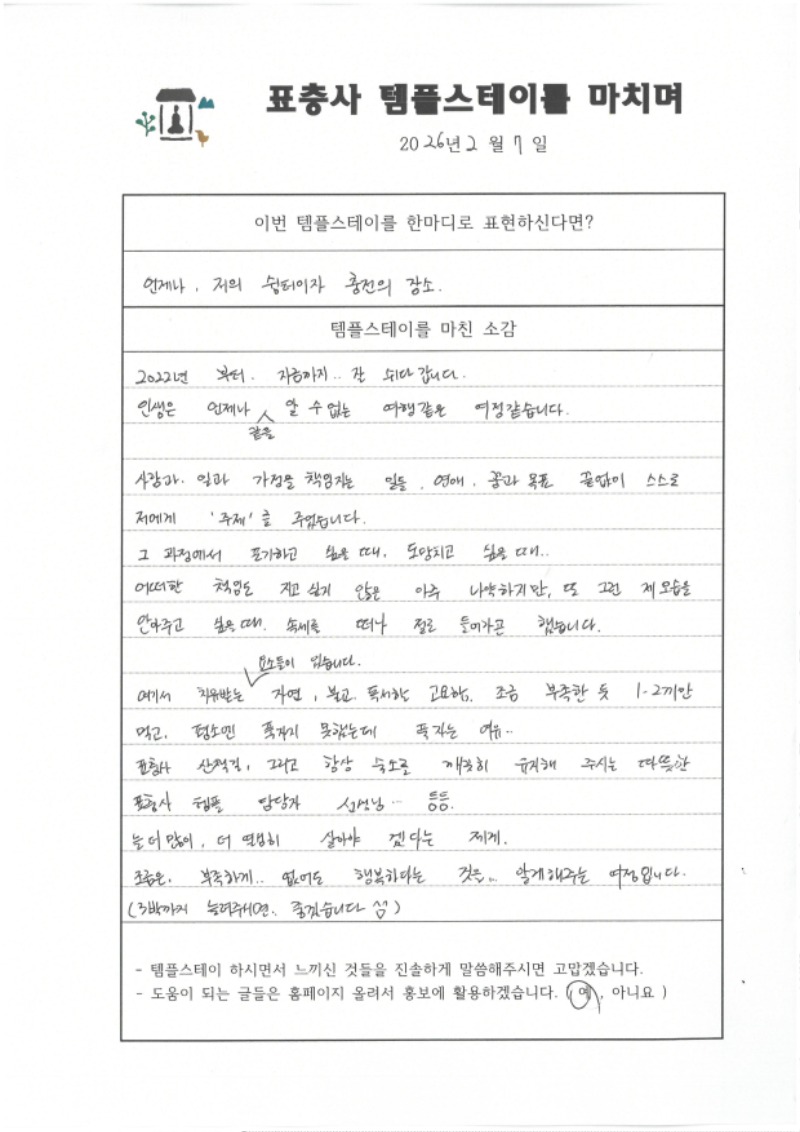 표충사 템플스테이를 마치며
2026년 2월 7일
이번 템플스테이를 한마디로 표현하신다면?
언제나, 저의 쉼터이자 충전의 장소.
템플스테이를 마친 소감
2022년 부터. 지금까지.. 잘 쉬다 갑니다.
인생은 언제나 알 수 없는 여행같은 여정같습니다.
같을
사랑과. 일과 가정을 책임지는 일들. 연애. 꿈과 목표 끝없이 스스로
저에게 '주제'를 주었습니다.
그 과정에서 포기하고 싶을 때, 도망치고 싶을 때..
어떠한 책임도 지고 싶지 않은 아주 나약하지만, 또 그런 제 모습을
안아주고 싶을 때. 속세를 떠나 절로 들어가곤 했습니다.
요소들이 있습니다.
여기서 치유받는 자연, 불교. 독서한 고요함. 조금 부족한 듯 1-2끼만
먹고. 평소엔 푹자지 못했는데 푹 자는 여유..
표충사 산책길, 그리고 항상 숙소를 깨끗히 유지해 주시는 따뜻한
표충사 템플 담당자 선생님… 등등.
늘 더 많이, 더 열심히 살아야 겠다는 제게.
조금은. 부족하게.. 없어도 행복하다는 것을.. 알게해주는 여정입니다.
(3박까지 늘려주시면.. 좋겠습니다)
- 템플스테이 하시면서 느끼신 것들을 진솔하게 말씀해주시면 고맙겠습니다.
- 도움이 되는 글들은 홈페이지 올려서 홍보에 활용하겠습니다. ( 예 , 아니요 )